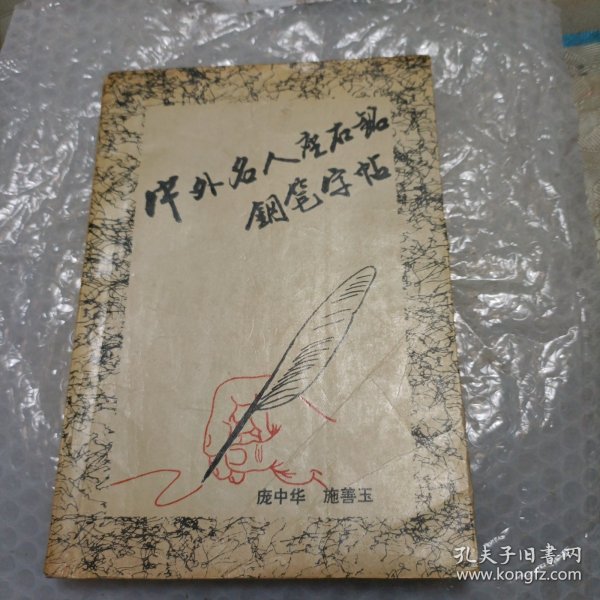 中外名人座右铭
钢笔字帖
庞中华 施善玉
孔夫子旧书网
www.kongfz.com